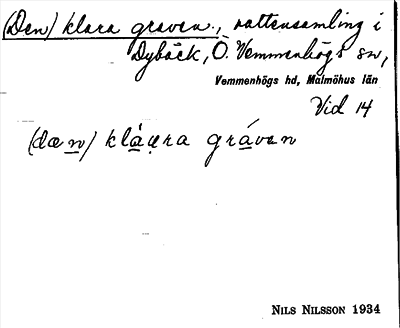 (Den) klara graven., vattensamling i
Dybäck, Ö. Vemmenhögs sn,
Vemmenhögs hd, Malmöhus län
Vid 14
(dæn) kláu̯ra gráven
NILS NILSSON 1934